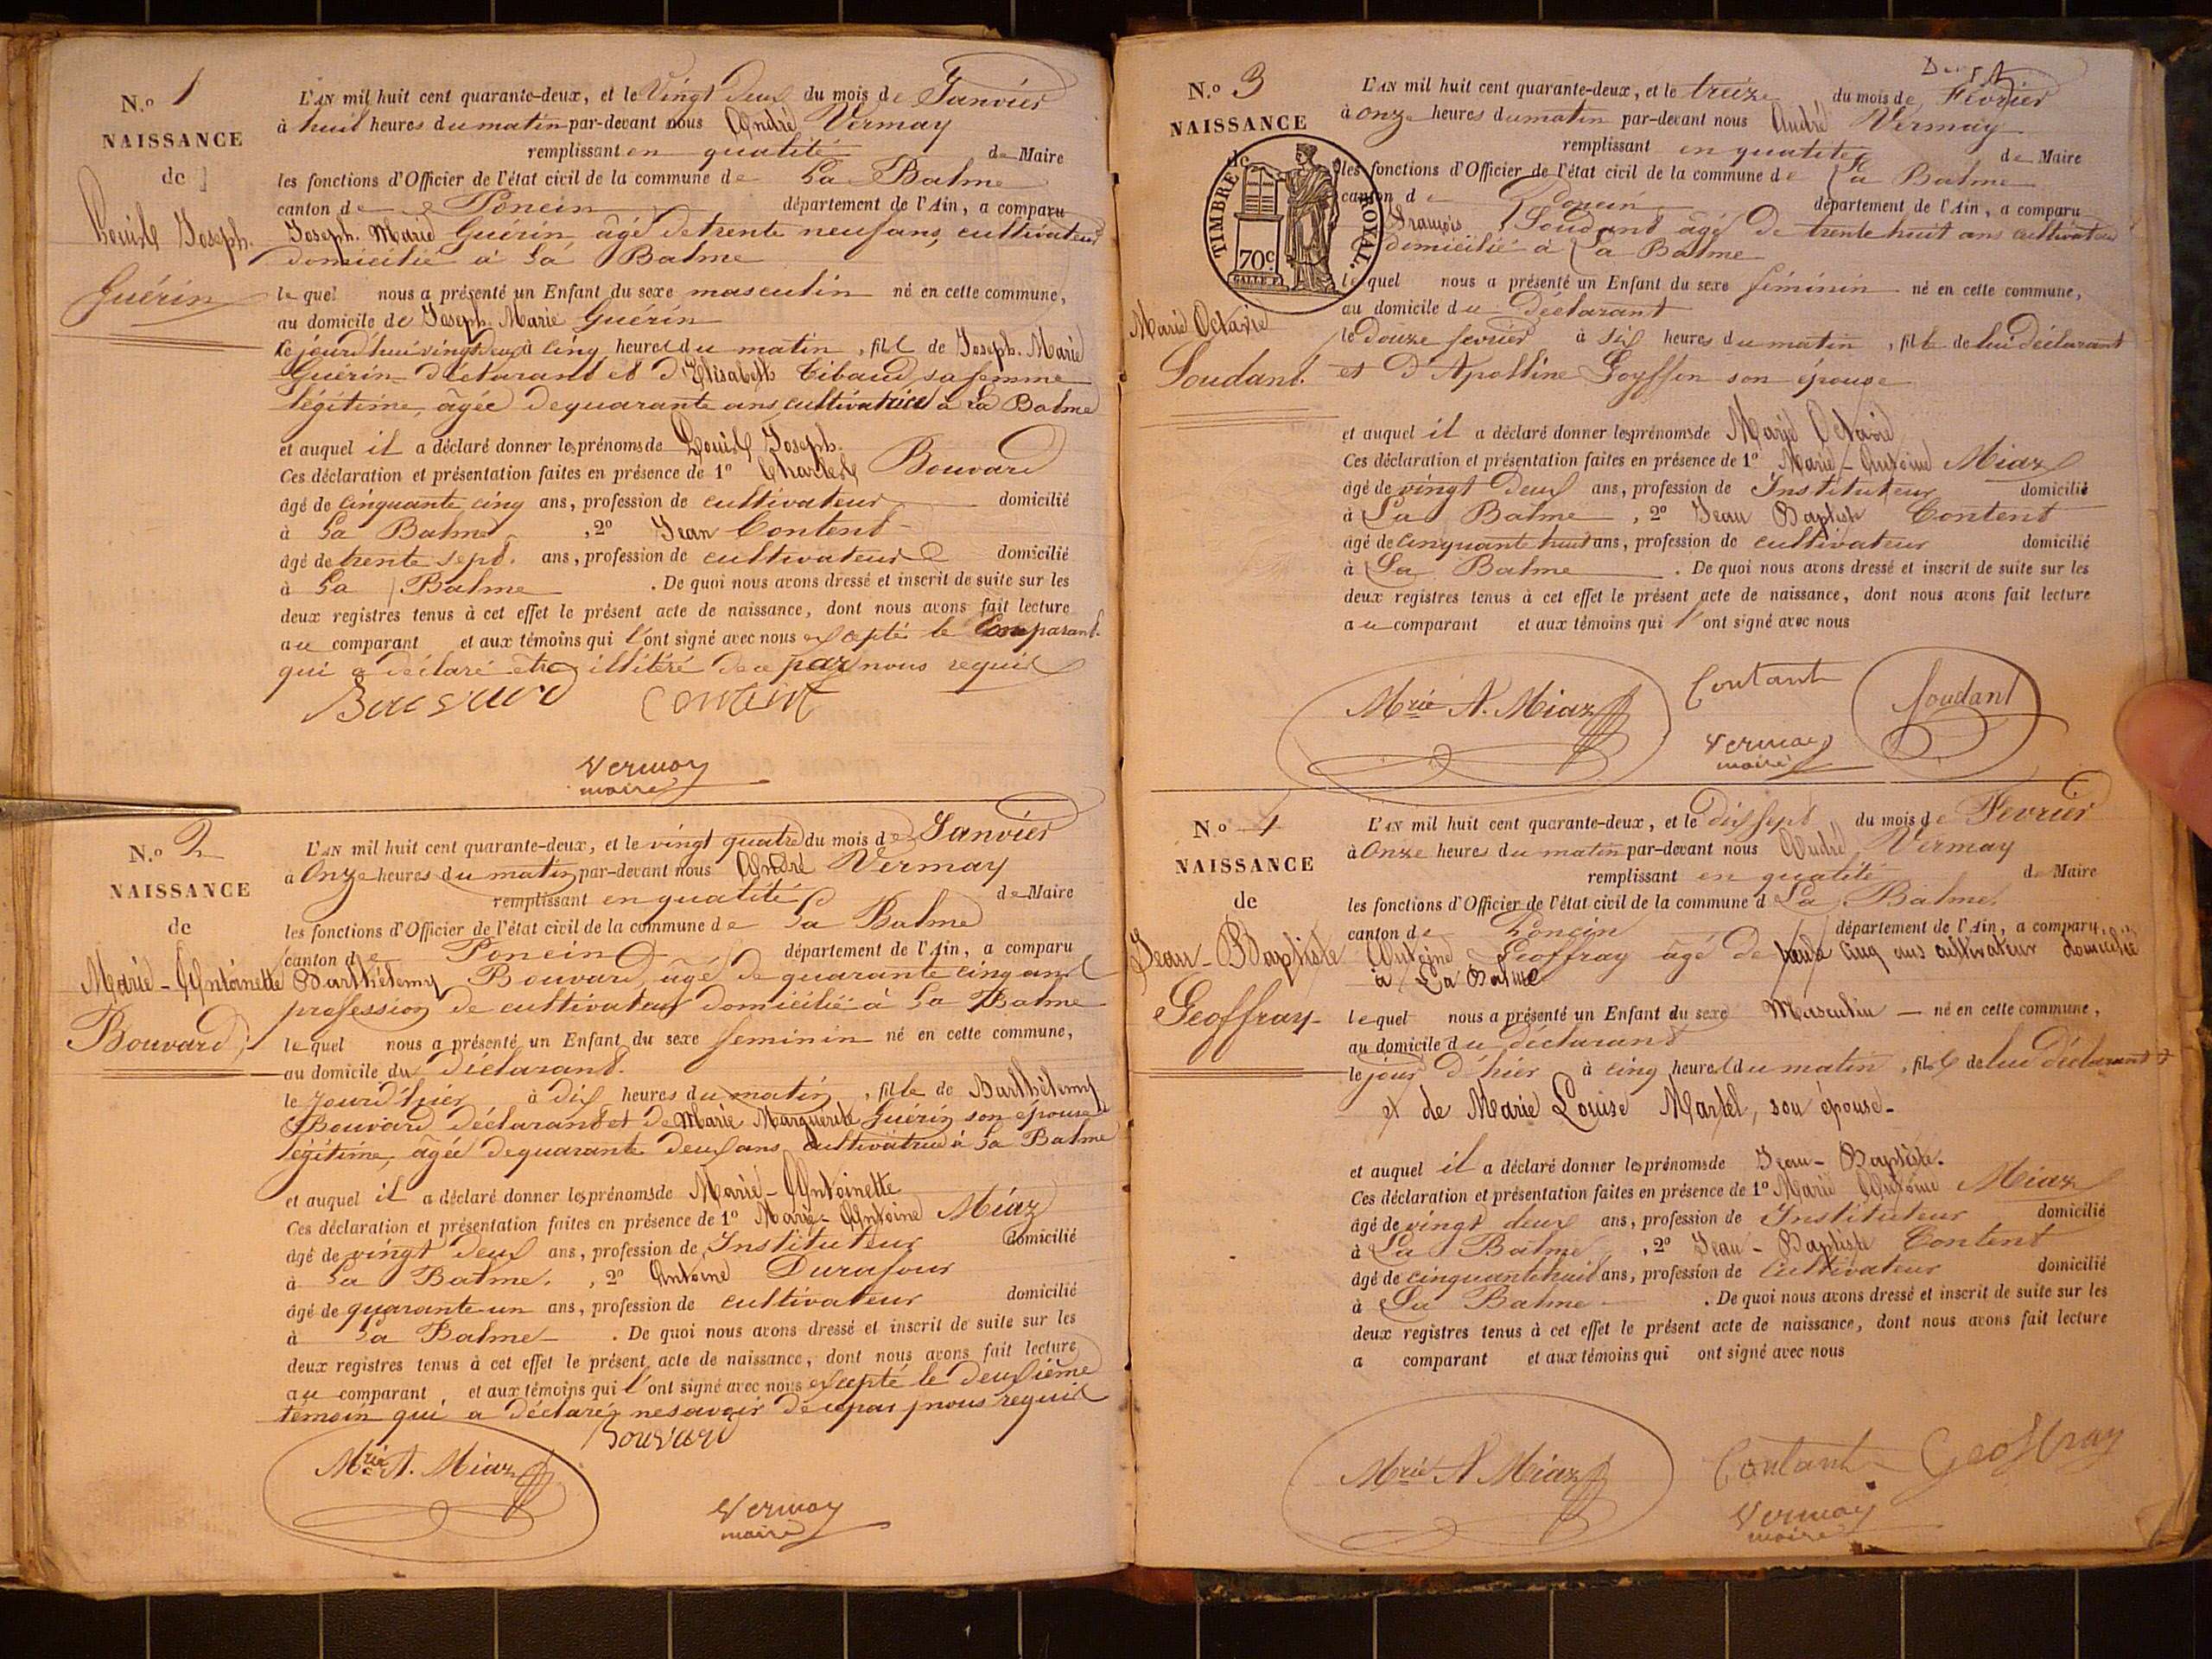 N.o 1
NAISSANCE
de
Louis Joseph.
Guérin
L'AN mil huit cent quarante-deux, et le Vingt deux du mois de Janvier
à huit heures du matin par-devant nous André Vermay
remplissant en qualité de Maire
les fonctions d'Officier de l'état civil de la commune de La Balme
canton de Poncin département de l'Ain, a comparu
Joseph. Marie Guérin âgé de trente neuf ans, cultivateur
domicilié à La Balme
lequel nous a présenté un Enfant du sexe masculin né en cette commune,
au domicile de Joseph. Marie Guérin
le jourd'hui vingt deux à cinq heures du matin, fils de Joseph. Marie
Guérin déclarant et d'Elisabeth Tibaud sa femme
légitime, âgée de quarante ans cultivatrice à La Balme
et auquel il a déclaré donner les prénoms de Louis Joseph.
Ces déclaration et présentation faites en présence de 1o Charles Bouvard
âgé de cinquante cinq ans, profession de cultivateur domicilié
à La Balme, 2o Jean Content
âgé de trente sept. ans, profession de cultivateur domicilié
à La Balme. De quoi nous avons dressé et inscrit de suite sur les
deux registres tenus à cet effet le présent acte de naissance, dont nous avons fait lecture
au comparant et aux témoins qui l'ont signé avec nous excepté le Comparant.
qui a déclaré etre illitéré de ce par nous requis
Bouvard Contant
Vermay
maire
N.o 2
NAISSANCE
de
Marie-Antoinette
Bouvard
L'AN mil huit cent quarante-deux, et le vingt quatre du mois de Janvier
à Onze heures du matin par-devant nous André Vermay
remplissant en qualité de Maire
les fonctions d'Officier de l'état civil de la commune de La Balme
canton de Poncin département de l'Ain, a comparu
Barthélemy Bouvard, âgé de quarante cinq ans
profession de cultivateur domicilié à La Balme
lequel nous a présenté un Enfant du sexe feminin né en cette commune,
au domicile du déclarant.
le jourd'hier à dix heures du matin, fille de Barthélemy
Bouvard déclarant et de Marie Marguerite Guérin son épouse
légitime, âgée de quarante deux ans cultivatrice à La Balme
et auquel il a déclaré donner les prénoms de Marie-Antoinette
Ces déclaration et présentation faites en présence de 1o Marie-Antoine Miaz
âgé de vingt deux ans, profession de Instituteur domicilié
à La Balme., 2o Antoine Durafour
âgé de quarante-un ans, profession de cultivateur domicilié
à La Balme. De quoi nous avons dressé et inscrit de suite sur les
deux registres tenus à cet effet le présent acte de naissance, dont nous avons fait lecture
au comparant et aux témoins qui l'ont signé avec nous excepté le deuxième
témoin qui a déclaré ne savoir de ce par nous requis
Bouvard
Mrie A. Miaz
Vermay
maire
N.o 3
NAISSANCE
de
TIMBRE ROYAL.
70c.
Marie Octavie
Soudant.
L'AN mil huit cent quarante-deux, et le treize du mois de Février
à onze heures du matin par-devant nous André Vermay
remplissant en qualité de Maire
les fonctions d'Officier de l'état civil de la commune de La Balme
canton de Poncin département de l'Ain, a comparu
François Soudant âgé de trente huit ans cultivateur
domicilié à La Balme
lequel nous a présenté un Enfant du sexe féminin né en cette commune,
au domicile du déclarant
le douze fevrier à six heures du matin, fille de lui déclarant
et D'Apolline Goyffon son épouse
et auquel il a déclaré donner les prénoms de Marie Octavie
Ces déclaration et présentation faites en présence de 1o Marie-Antoine Miaz
âgé de vingt deux ans, profession de Instituteur domicilié
à La Balme, 2o Jean Baptiste Content
âgé de cinquante huit ans, profession de cultivateur domicilié
à La Balme. De quoi nous avons dressé et inscrit de suite sur les
deux registres tenus à cet effet le présent acte de naissance, dont nous avons fait lecture
au comparant et aux témoins qui l'ont signé avec nous
Mrie A. Miaz Contant Soudant
Vermay
maire
N.o 4
NAISSANCE
de
Jean-Baptiste
Geoffray
L'AN mil huit cent quarante-deux, et le dix sept du mois de Fevrier
à Onze heures du matin par-devant nous André Vermay
remplissant en qualité de Maire
les fonctions d'Officier de l'état civil de la commune d La Balme
canton de Poncin département de l'Ain, a comparu
Antoine Geoffray âgé de trente cinq ans cultivateur domicilié
à La Balme
lequel nous a présenté un Enfant du sexe Masculin né en cette commune,
au domicile du déclarant
le jour d'hier à cinq heures du matin, fils de lui déclarant
et de Marie Louise Martel, son épouse-
et auquel il a déclaré donner les prénoms de Jean-Baptiste.
Ces déclaration et présentation faites en présence de 1o Marie Antoine Miaz
âgé de vingt deux ans, profession de Instituteur domicilié
à La Balme, 2o Jean-Baptiste Content
âgé de cinquante huit ans, profession de Cultivateur domicilié
à La Balme. De quoi nous avons dressé et inscrit de suite sur les
deux registres tenus à cet effet le présent acte de naissance, dont nous avons fait lecture
a comparant et aux témoins qui ont signé avec nous
Mrie A Miaz Contant Geoffray
Vermay
maire